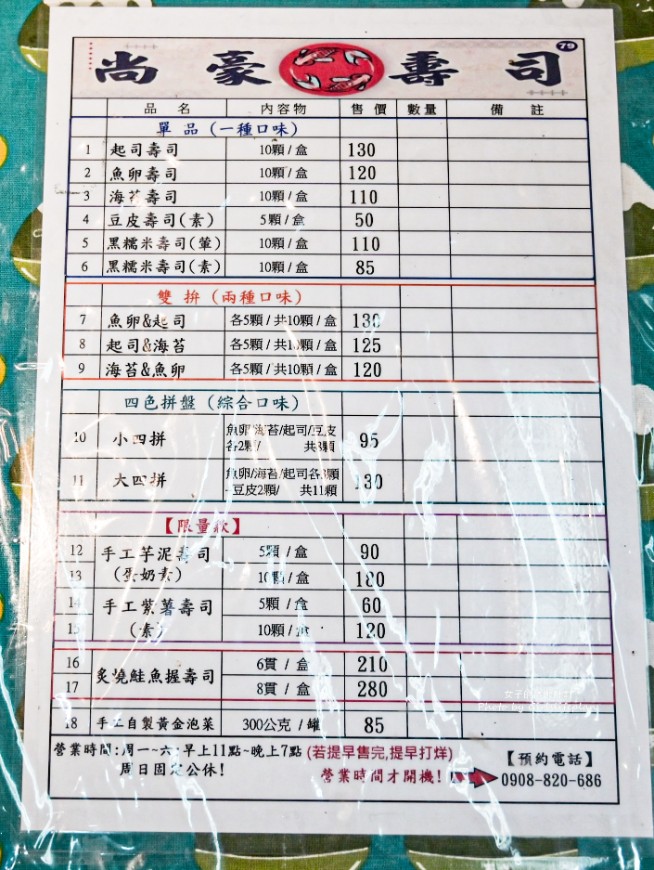 尚豪壽司 79
品名 內容物 售價 數量 備註
單品(一種口味)
1 起司壽司 10顆/盒 130
2 魚卵壽司 10顆/盒 120
3 海苔壽司 10顆/盒 110
4 豆皮壽司(素) 5顆/盒 50
5 黑糯米壽司(葷) 10顆/盒 110
6 黑糯米壽司(素) 10顆/盒 85
雙拚(兩種口味)
7 魚卵&起司 各5顆/共10顆/盒 130
8 起司&海苔 各5顆/共10顆/盒 125
9 海苔&魚卵 各5顆/共10顆/盒 120
四色拼盤(綜合口味)
10 小四拼 魚卵/海苔/起司/豆皮 95
各2顆/ 共8顆
11 大四拼 魚卵/海苔/起司各3顆 130
豆皮2顆/ 共11顆
【限量款】
12 手工芋泥壽司 5顆/盒 90
13 (蛋奶素) 10顆/盒 180
14 手工紫薯壽司 5顆/盒 60
15 (素) 10顆/盒 120
16 炙燒鮭魚握壽司 6貫/盒 210
17 8貫/盒 280
18 手工自製黃金泡菜 300公克/罐 85
營業時間:周一~六:早上11點~晚上7點(若提早售完,提早打烊) 【預約電話】
周日固定公休! 營業時間才開機! 0908-820-686